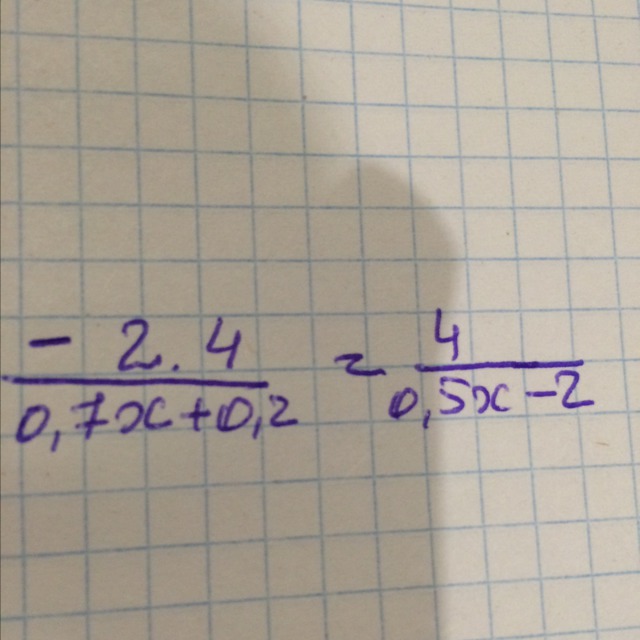 - 2.4 = 4
0,7x+0,2 0,5x-2